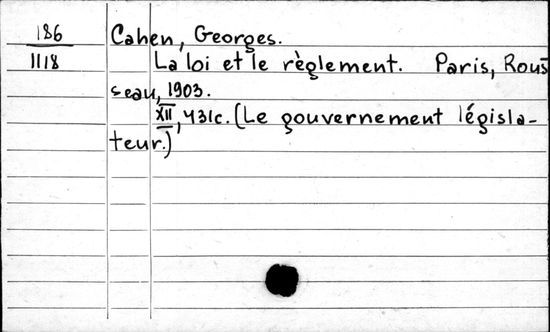 186 Cahen, Georges.
1118 La loi et le règlement. Paris, Rous
seau, 1903.
XII, 431c. (Le gouvernement législa-
teur.)